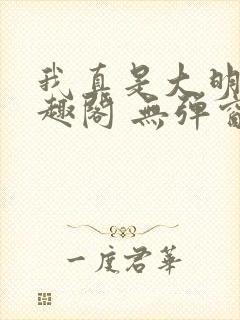 我真是大明
趣阁 無弹窗
一度君华